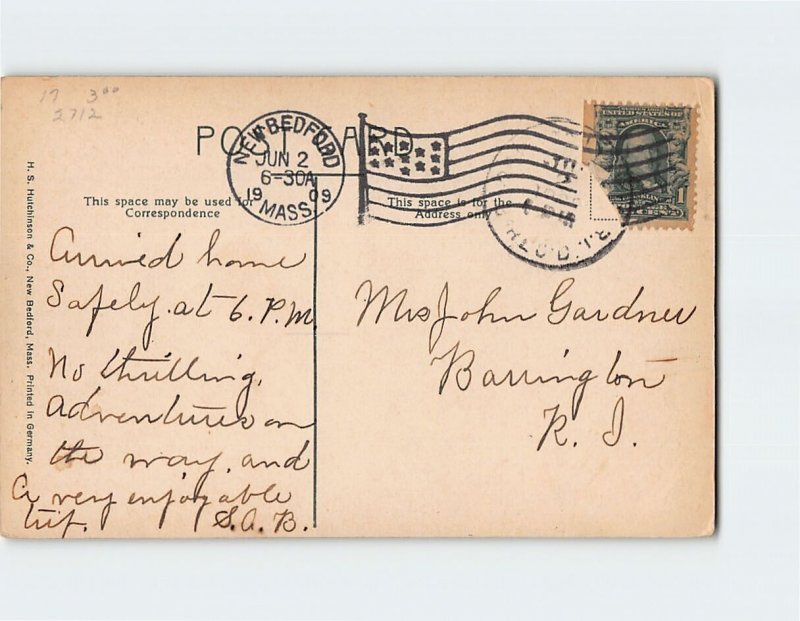 17 3⁰⁰
2712
POST CARD
NEW BEDFORD
JUN 2
6-30A
1909
MASS.
UNITED STATES OF
AMERICA
1
This space may be used for
Correspondence
This space is for the
Address only
REC'D.
R.I.
H. S. Hutchinson & Co., New Bedford, Mass. Printed in Germany.
Arrived home
Safely. at 6. P.M.
No thrilling.
Adventures on
the way. and
a very enjoyable
trip. S.A.B.
Mrs John Gardner
Barrington
R. I.